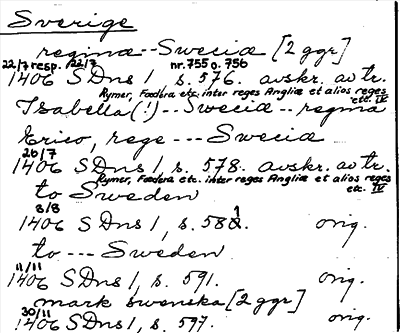 Sverige
regina -- Sweciæ [2 ggr]
22/7 resp. 22/7 nr. 755 o. 756
1406 SDns 1, s. 576. avskr. av tr.
Rymer, Foedera etc. inter reges Angliæ et alios reges etc. IV
Isabella (!) -- Sweciæ -- regina
Erico, rege --- Sweciæ
26/7
1406 SDns 1, s. 578. avskr. av tr.
Rymer, Foedera etc. inter reges Angliæ et alios reges etc. IV
to Sweden
8/8
1406 SDns 1, s. 581. orig.
to --- Sweden
11/11
1406 SDns 1, s. 591. orig.
mark swenska [2 ggr]
30/11
1406 SDns 1, s. 597. orig.